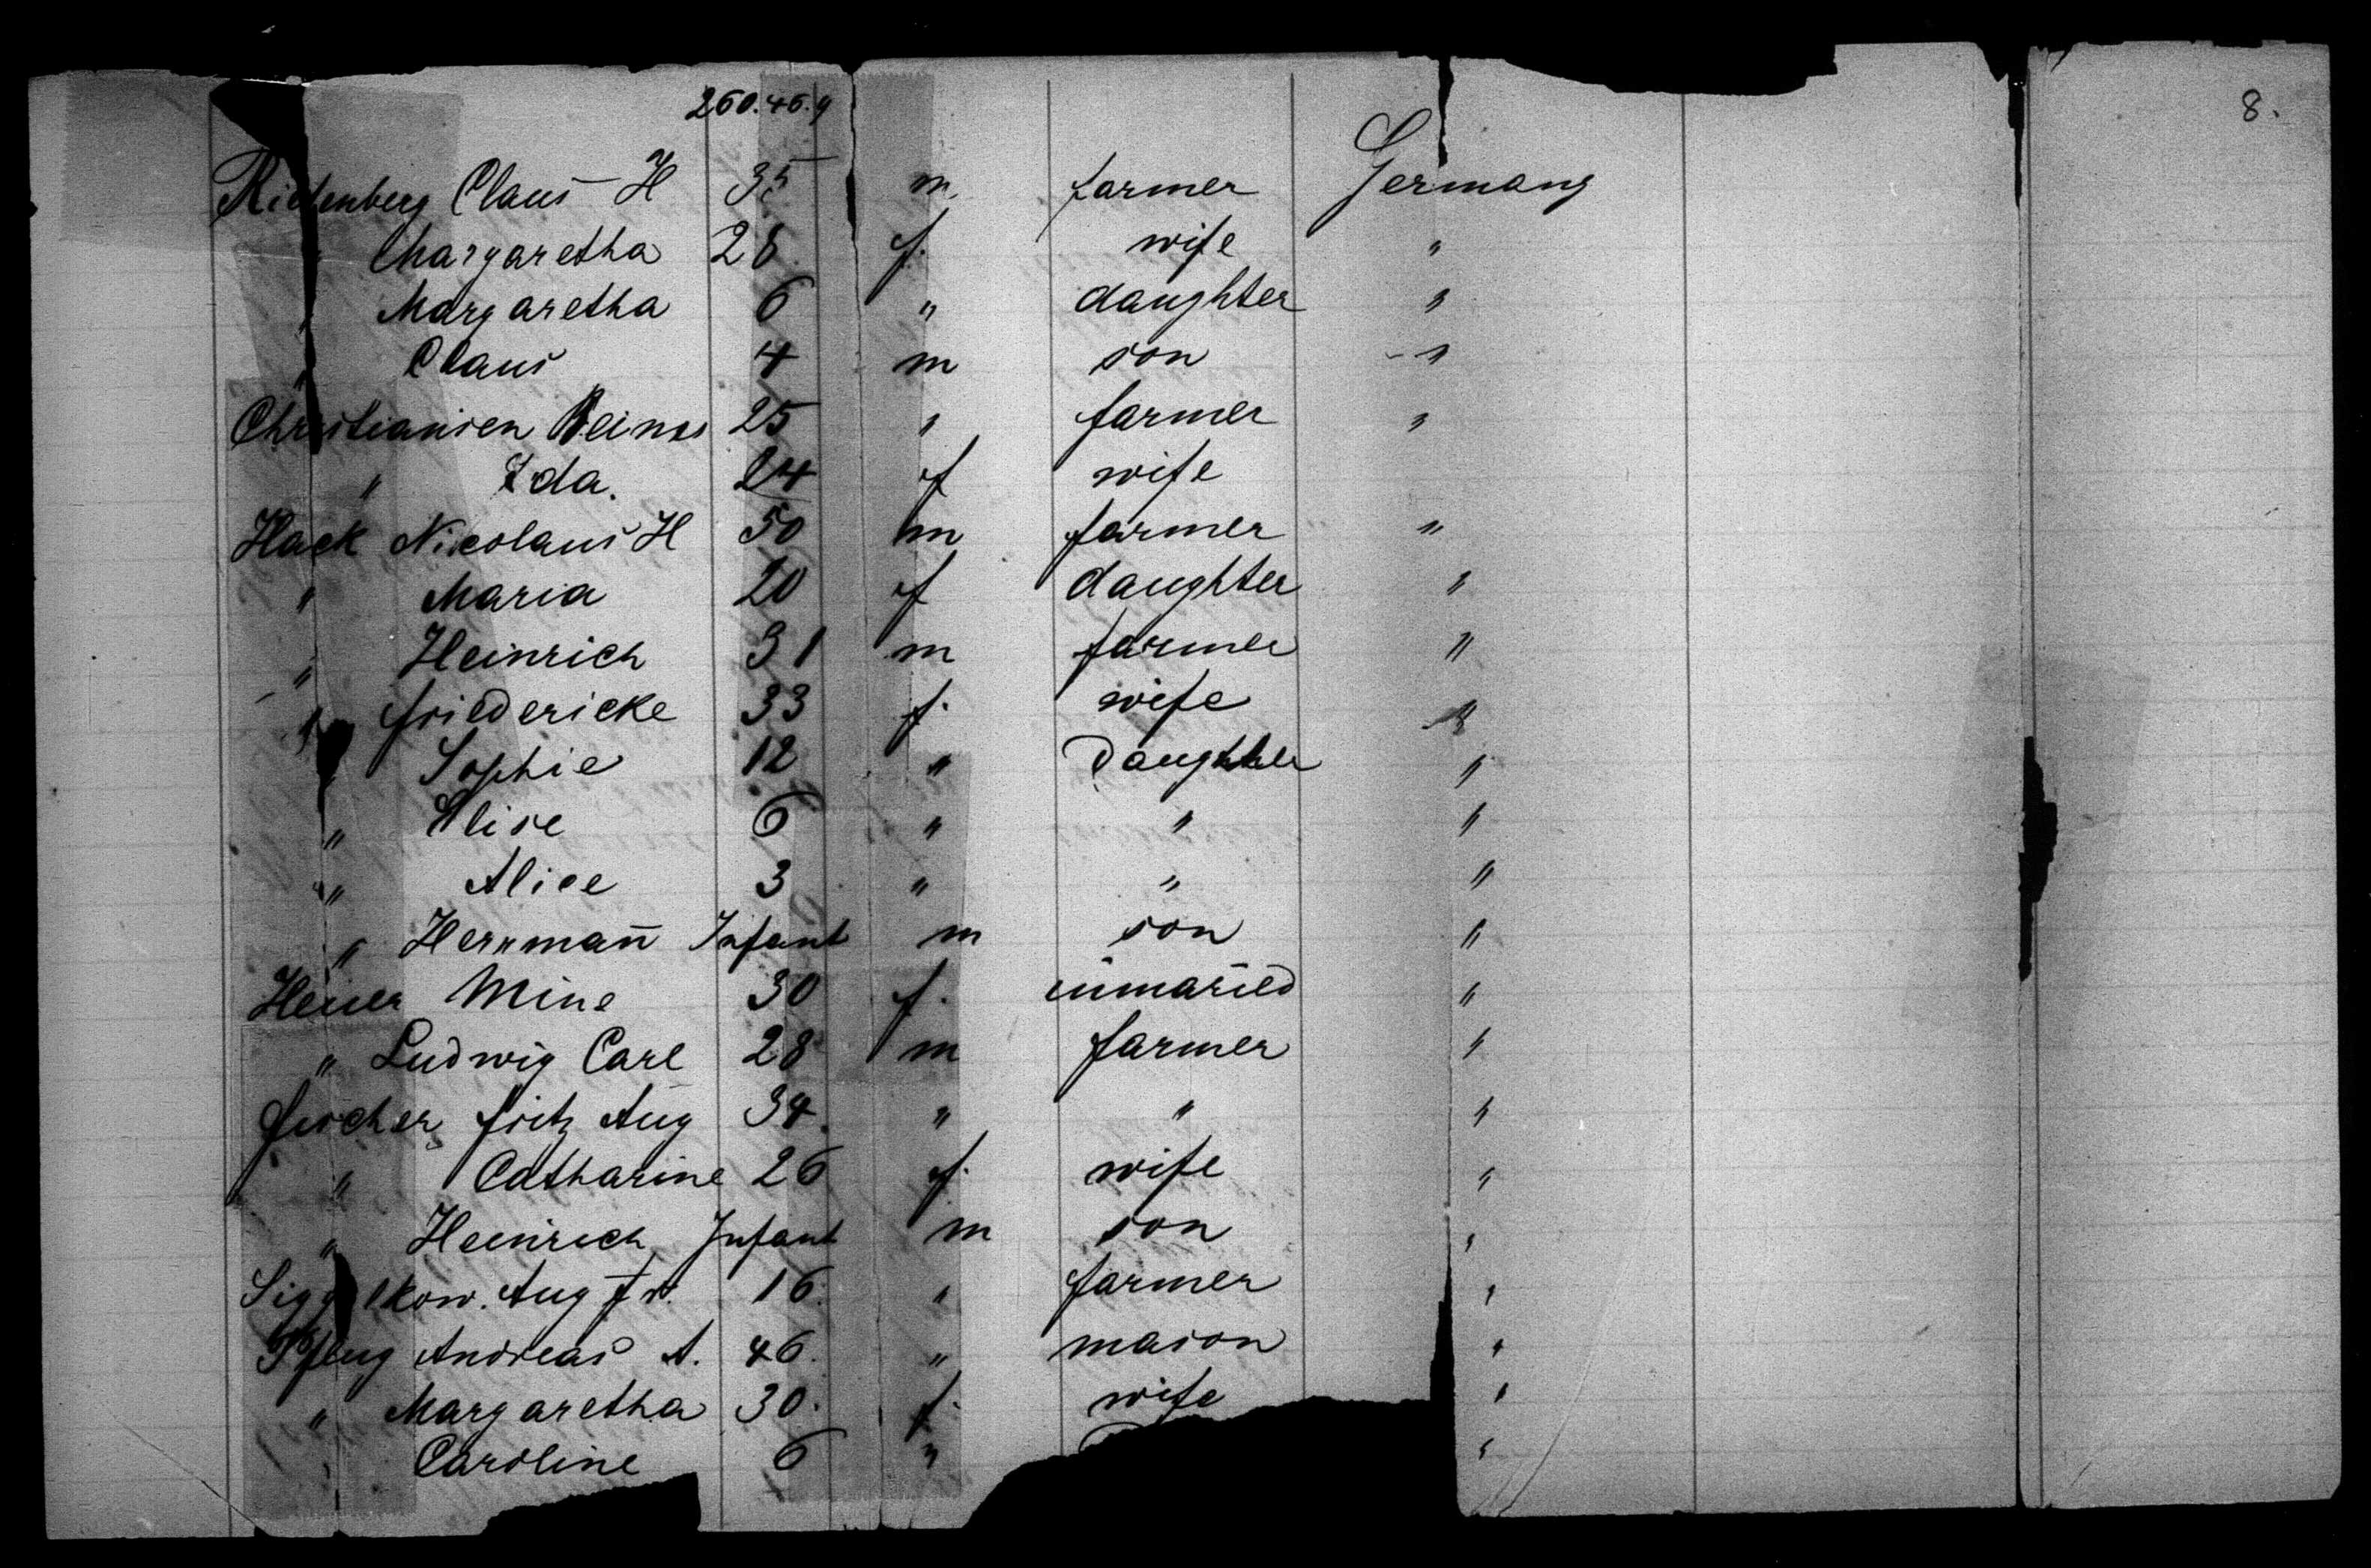 260.46.9
8.
Rietenberg Claus H 35 m farmer Germany
" Margaretha 28. f. wife "
" Margaretha 6 " daughter "
" Claus 4 m son "
Christiansen 25 " farmer "
" Ida. 24 f wife
Hack Nicolaus H 50 m farmer "
" Maria 20 f daughter "
" Heinrich 31 m farmer "
" friedericke 33 f. wife "
Sophie 12 " Daughter "
" Elise 6 " " "
" Alice 3 " " "
" Herrmañ Infant m son "
Heuer Mine 30 f. unmaried "
" Ludwig Carl 28 m farmer "
fischer fritz Aug 34. " " "
" Catharine 26 f. wife "
" Heinrich Infant m son "
Siggelkow. Aug fr. 16. " farmer "
Pflug Andreas A. 46. " mason "
" Margaretha 30. f. wife "
" Caroline 6 " "